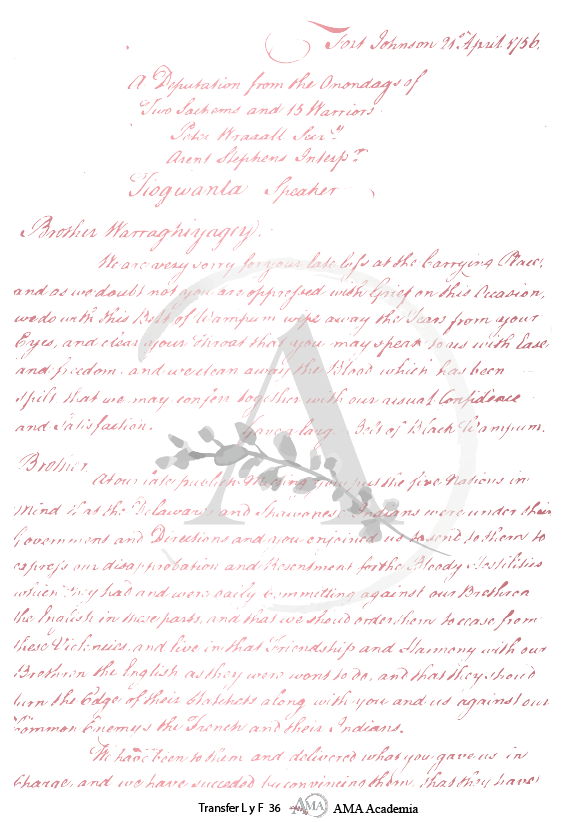 Fort Johnson 21st April 1756.
A Deputation from the Onondags of
Two Sachems and 13 Warriors
Peter Wraxall Secry
Arent Stephens Interpr
Tiogwanta Speaker
Brother Warraghiyagey.
We are very sorry for your late loss at the Carrying Place,
and as we doubt not you are oppressed with Grief on this Occasion,
we do with this Belt of Wampum wipe away the Tears from your
Eyes, and clear your throat that you may speak to us with Ease
and freedom, and we clean away the Blood which has been
spilt that we may confer together with our usual Confidence
and Satisfaction. Gave a large Belt of Black Wampum.
Brother
At our late publick Meeting you put the five Nations in
mind that the Delawares and Shawanese Indians were under their
Government and Directions and you enjoined us to send to them to
express our disapprobation and Resentment for the Bloody Hostilities
which they had and were daily committing against our Brethren
the English in these parts, and that we should order them to cease from
these Violencies, and live in that Friendship and Harmony with our
Brethren the English as they were wont to do, and that they should
turn the Edge of their Hatchets along with you and us against our
Common Enemys the French and their Indians.
We have been to them and delivered what you gave us in
Charge, and we have succeded by convincing them, that they have
Transfer L y F 36 AMA AMA Academia
A